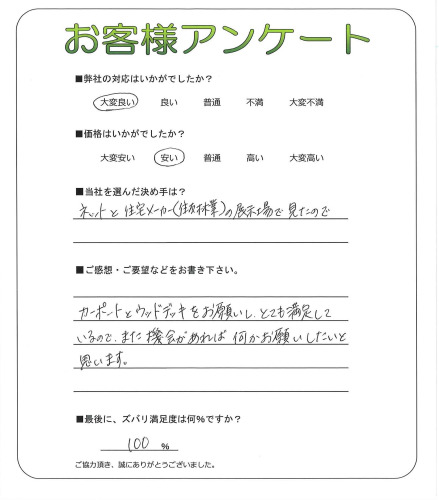 お客様アンケート
■弊社の対応はいかがでしたか?
大変良い 良い 普通 不満 大変不満
■価格はいかがでしたか?
大変安い 安い 普通 高い 大変高い
■当社を選んだ決め手は?
ネットと住宅メーカー(住友林業)の展示場で見たので
■ご感想・ご要望などをお書き下さい。
カーポートとウッドデッキをお願いし、とても満足して
いるので、また機会があれば何かお願いしたいと
思います。
■最後に、ズバリ満足度は何%ですか?
100 %
ご協力頂き、誠にありがとうございました。